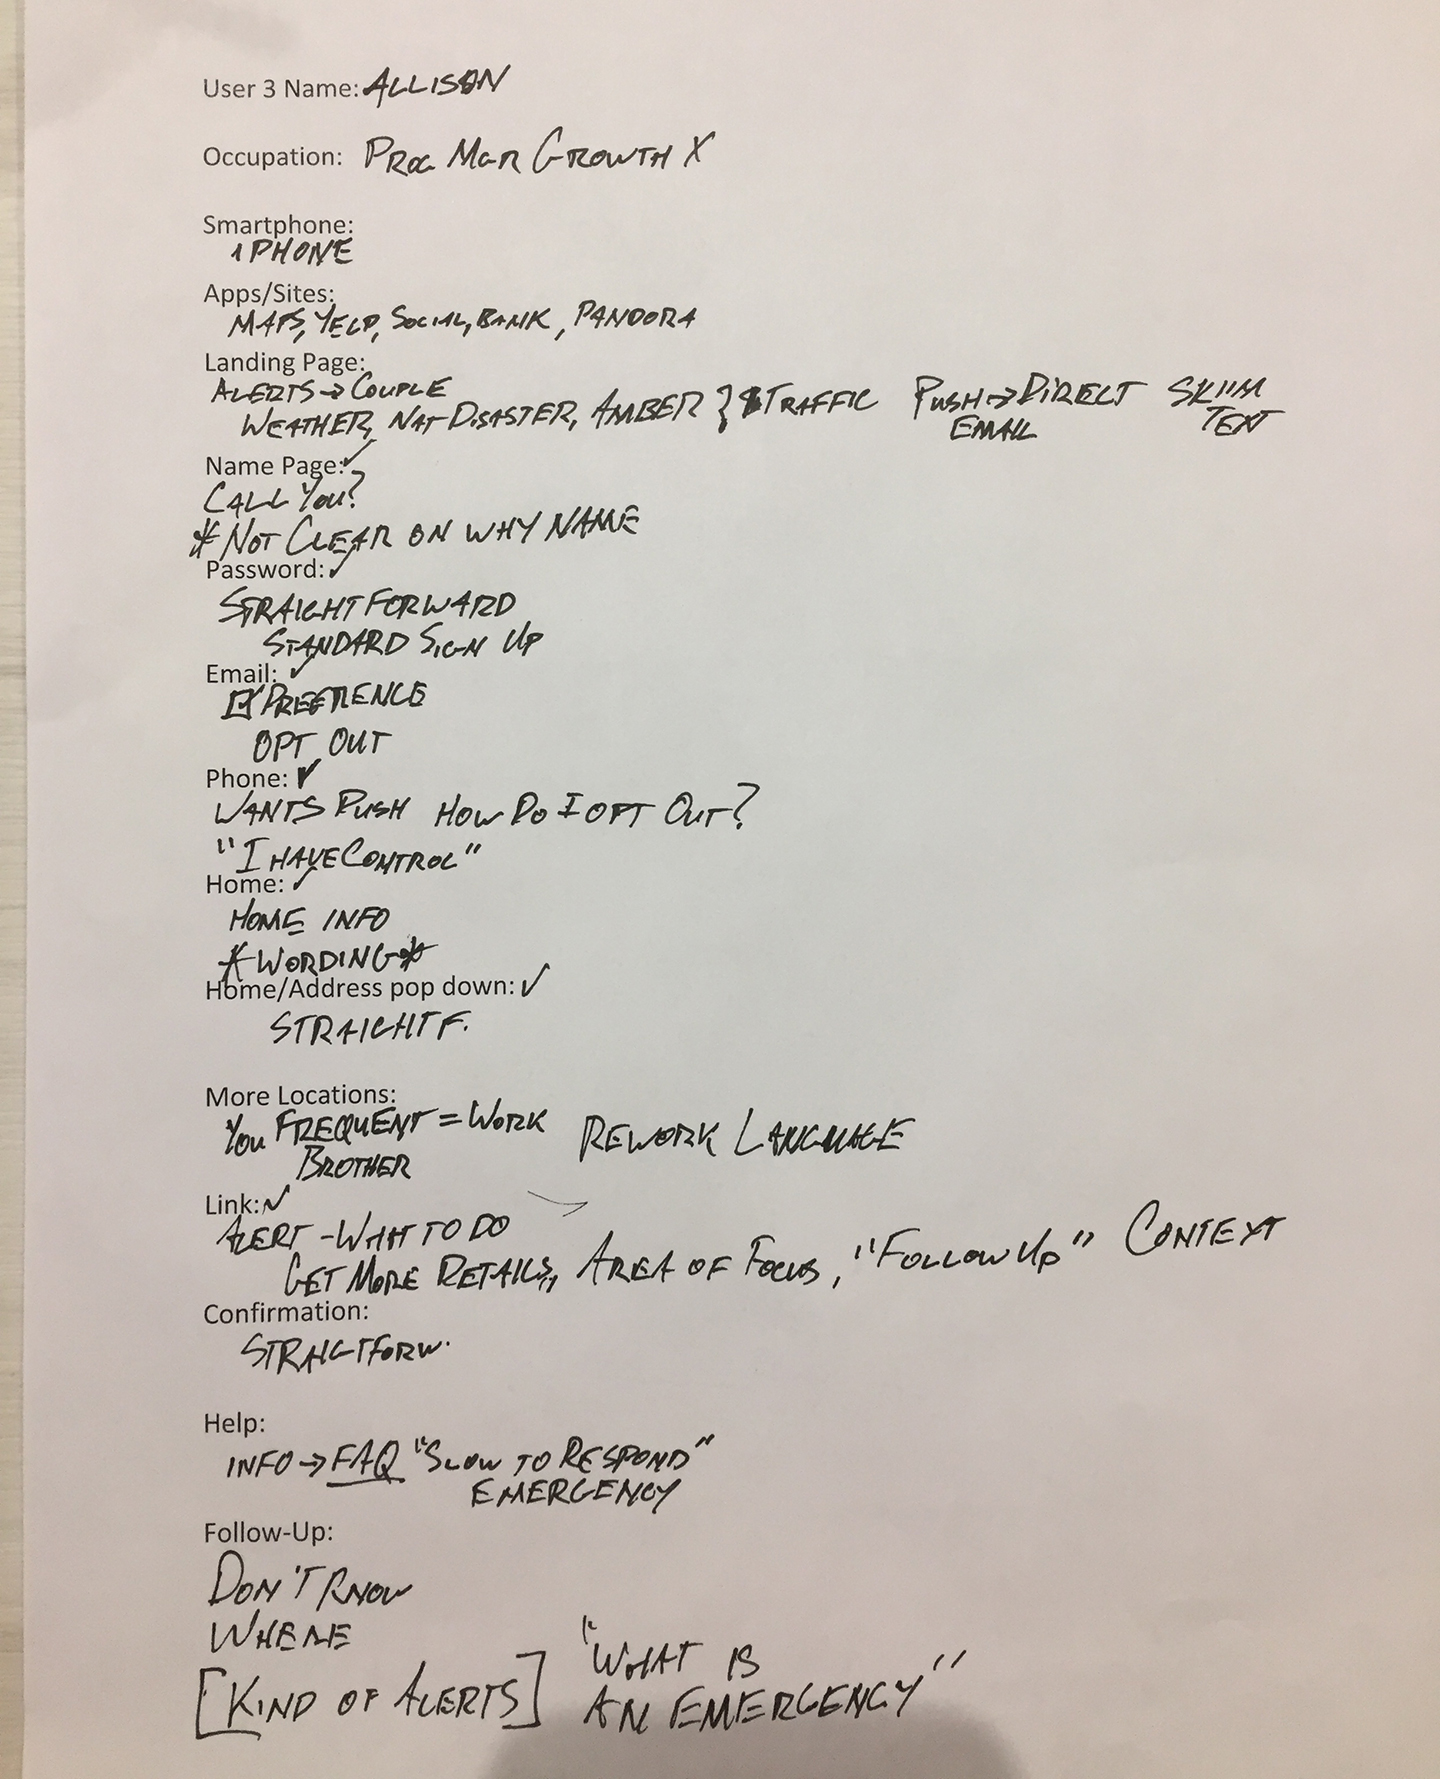 User 3 Name: ALLISON
Occupation: PROG MGR GROWTH X
Smartphone:
IPHONE
Apps/Sites:
MAPS, YELP, SOCIAL, BANK, PANDORA
Landing Page:
ALERTS → COUPLE
WEATHER, NAT DISASTER, AMBER } TRAFFIC PUSH → DIRECT SKIIM
EMAIL TEXT
Name Page: ✓
CALL YOU?
* NOT CLEAR ON WHY NAME
Password: ✓
STRAIGHT FORWARD
STANDARD SIGN UP
Email: ✓
☑ PREFRENCE
OPT OUT
Phone: ✓
WANTS PUSH HOW DO I OPT OUT?
"I HAVE CONTROL"
Home: ✓
HOME INFO
* WORDING *
Home/Address pop down: ✓
STRAIGHT F.
More Locations:
YOU FREQUENT = WORK REWORK LANGUAGE
BROTHER
Link: ✓
ALERT - WHAT TO DO
GET MORE DETAILS, AREA OF FOCUS, "FOLLOW UP" CONTEXT
Confirmation:
STRAIGTFORW.
Help:
INFO → FAQ "SLOW TO RESPOND"
EMERGENCY
Follow-Up:
DON'T KNOW
WHERE
[KIND OF ALERTS] "WHAT IS
AN EMERGENCY"